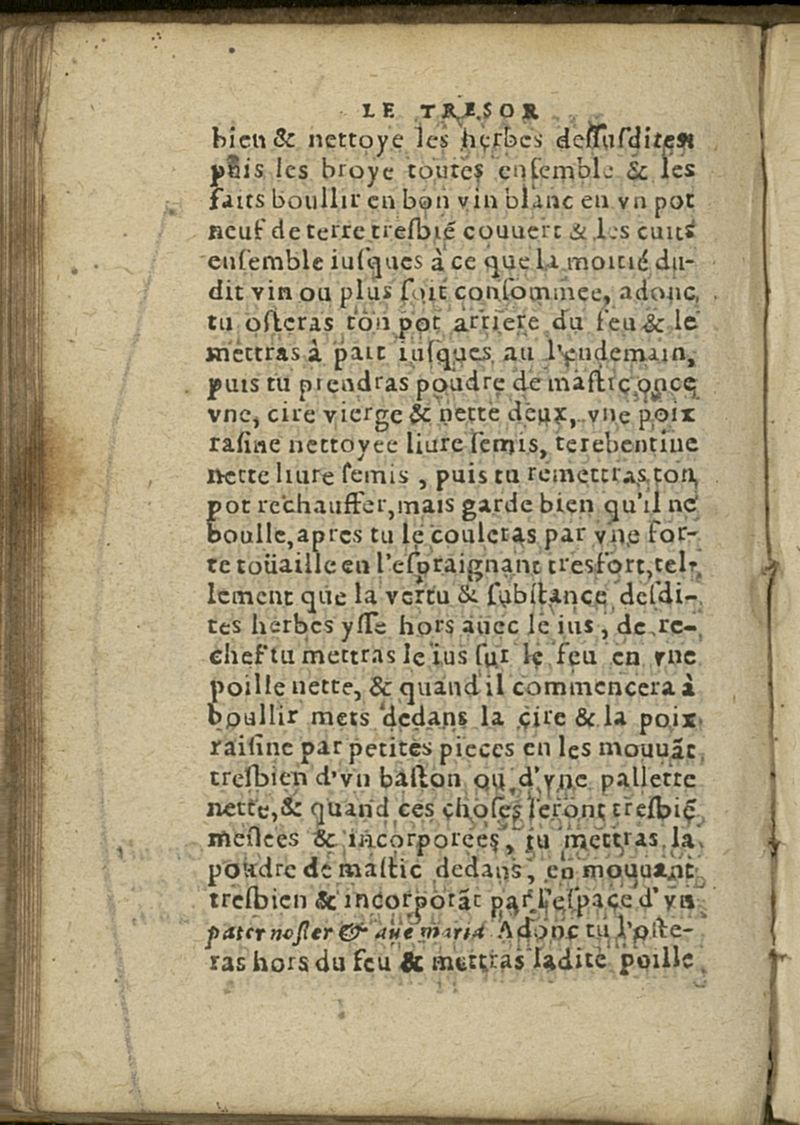 LE TRESOR
bien & nettoye les herbes deſſuſdites
puis les broye toutes enſemble & les
faits boullir en bon vin blanc en vn pot
neuf de terre treſbié couuert & les cuits
enſemble iuſques à ce que la moitié du-
dit vin ou plus ſoit conſommee, adonc,
tu oſteras ton pot arriere du feu & le
mettras à part iuſques au l'endemain,
puis tu prendras poudre de maſtic once
vne, cire vierge & nette deux, vne poix
raſine nettoyee liure ſemis, terebentine
nette liure ſemis , puis tu remettras ton
pot rechauffer, mais garde bien qu'il ne
boulle, apres tu le couleras par vne for-
te toüaille en l'eſpraignant tresfort, tel-
lement que la vertu & ſubſtance deſdi-
tes herbes yſſe hors auec le ius , de re-
chef tu mettras le ius ſur le feu en vne
poille nette, & quand il commencera à
boullir mets dedans la cire & la poix
raiſine par petites pieces en les mouuāt
treſbien d'vn baſton ou d'vne pallette
nette, & quand ces choſes ſeront treſbié
meſlees & incorporees, tu mettras la
poudre de maſtic dedans, en mouuant
treſbien & incorporāt par l'eſpace d'vn
pater noſter & aue maria Adonc tu l'oſte-
ras hors du feu & mettras ladite poille